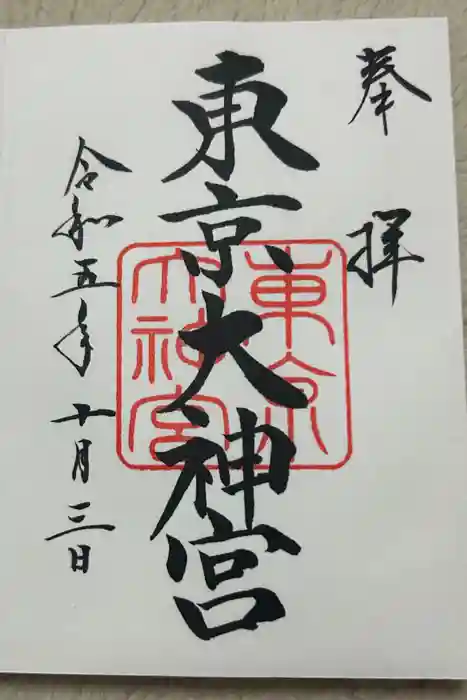 奉拝
東京大神宮
東京大神宮
令和五年十月三日